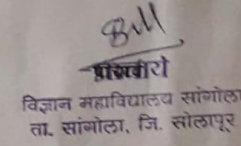 विज्ञान महाविद्यालय सांगोला
ता. सांगोला, जि. सोलापूर